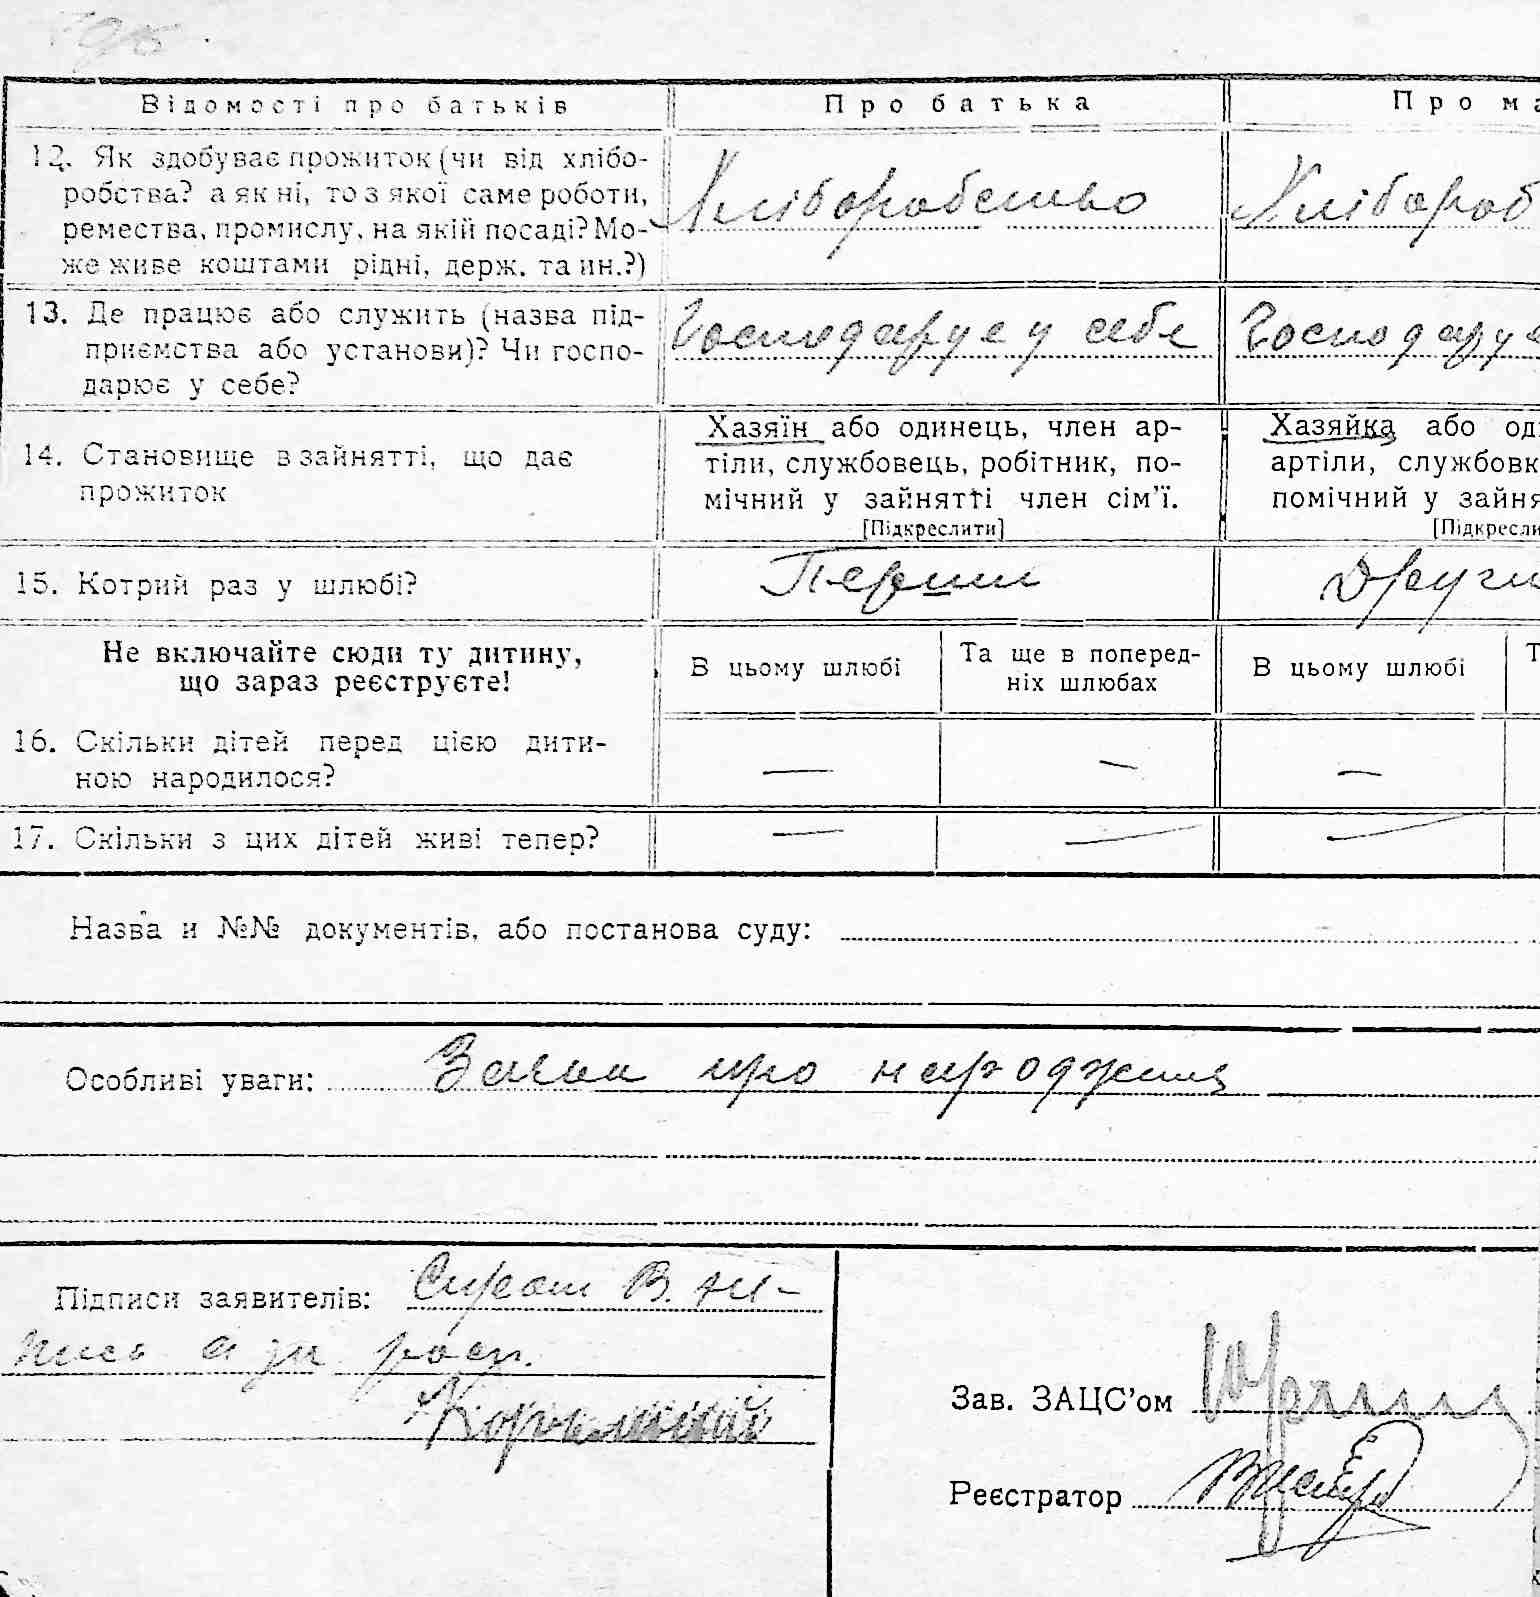 Відомості про батьків
Про батька
Про ма
12. Як здобуває прожиток (чи від хлібо-
робства? а як ні, то з якої саме роботи,
ремества, промислу, на якій посаді? Мо-
же живе коштами рідні, держ. та ин.?)
Хліборобство
Хлібороб
13. Де працює або служить (назва під-
приємства або установи)? Чи госпо-
дарює у себе?
Господарує у себе
Господарує
14. Становище в зайнятті, що дає
прожиток
Хазяїн або одинець, член ар-
тіли, службовець, робітник, по-
мічний у зайнятті член сім'ї.
[Підкреслити]
Хазяйка або од
артіли, службовк
помічний у зайня
[Підкресли
15. Котрий раз у шлюбі?
Перший
Други
Не включайте сюди ту дитину,
що зараз реєструєте!
В цьому шлюбі
Та ще в поперед-
ніх шлюбах
В цьому шлюбі
Т
16. Скільки дітей перед цією дити-
ною народилося?
—
—
—
17. Скільки з цих дітей живі тепер?
—
—
—
Назва и №№ документів, або постанова суду:
Особливі уваги: Заява про народження
Підписи заявителів: В.
а за
Зав. ЗАЦС'ом
Реєстратор